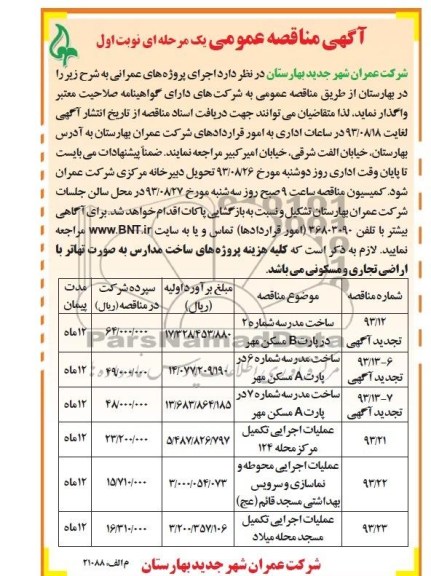 آگهی مناقصه عمومی یک مرحله ای نوبت اول
شرکت عمران شهر جدید بهارستان در نظر دارد اجرای پروژه های عمرانی به شرح زیر را
در بهارستان از طریق مناقصه عمومی به شرکت های دارای گواهینامه صلاحیت معتبر
واگذار نماید. لذا متقاضیان می توانند جهت دریافت اسناد مناقصه از تاریخ انتشار آگهی
لغایت ۹۳/۰۸/۱۸ در ساعات اداری به امور قراردادهای شرکت عمران بهارستان به آدرس
بهارستان، خیابان الفت شرقی، خیابان امیرکبیر مراجعه نمایند. ضمناً پیشنهادات می بایست
تا پایان وقت اداری روز دوشنبه مورخ ۹۳/۰۸/۲۶ تحویل دبیرخانه مرکزی شرکت عمران
شود. کمیسیون مناقصه ساعت ۹ صبح روز سه شنبه مورخ ۹۳/۰۸/۲۷ در محل سالن جلسات
شرکت عمران بهارستان تشکیل و نسبت به بازگشایی پاکات اقدام خواهد شد. برای آگاهی
بیشتر با تلفن ۳۶۸۰۳۰۹۰ (امور قراردادها) تماس و یا به سایت www.BNT.ir مراجعه
نمایید. لازم به ذکر است که کلیه هزینه پروژه های ساخت مدارس به صورت تهاتر با
اراضی تجاری و مسکونی می باشد.
شماره مناقصه موضوع مناقصه مبلغ برآورد اولیه (ریال) سپرده شرکت در مناقصه (ریال) مدت پیمان
۹۳/۱۲ تجدید آگهی ساخت مدرسه شماره ۲ در پارت B مسکن مهر ۱۷/۳۲۸۴۵۳/۸۸۰ ۶۴/۰۰۰/۰۰۰ ۱۲ماه
۹۳/۱۳-۶ تجدید آگهی ساخت مدرسه شماره ۶ در پارت A مسکن مهر ۱۴/۰۷۷۲۰۹۱۹۰ ۴۹/۰۰۰/۰۰۰ ۱۲ماه
۹۳/۱۳-۷ تجدید آگهی ساخت مدرسه شماره ۷ در پارت A مسکن مهر ۱۳/۶۸۳/۸۶۴/۱۸۵ ۴۸/۰۰۰/۰۰۰ ۱۲ماه
۹۳/۲۱ عملیات اجرایی تکمیل مرکز محله ۱۲۴ ۵/۴۸۷/۸۲۶/۷۹۷ ۲۳/۲۰۰/۰۰۰ ۱۲ماه
۹۳/۲۲ عملیات اجرایی محوطه و نماسازی و سرویس بهداشتی مسجد قائم (عج) ۳/۰۰۰/۰۵۴/۰۷۳ ۱۵/۷۱۰/۰۰۰ ۱۲ماه
۹۳/۲۳ عملیات اجرایی تکمیل مسجد محله میلاد ۳/۲۰۰/۳۵۷/۱۰۶ ۱۶/۳۱۰/۰۰۰ ۱۲ماه
شرکت عمران شهر جدید بهارستان
م الف: ۲۱۰۸۸